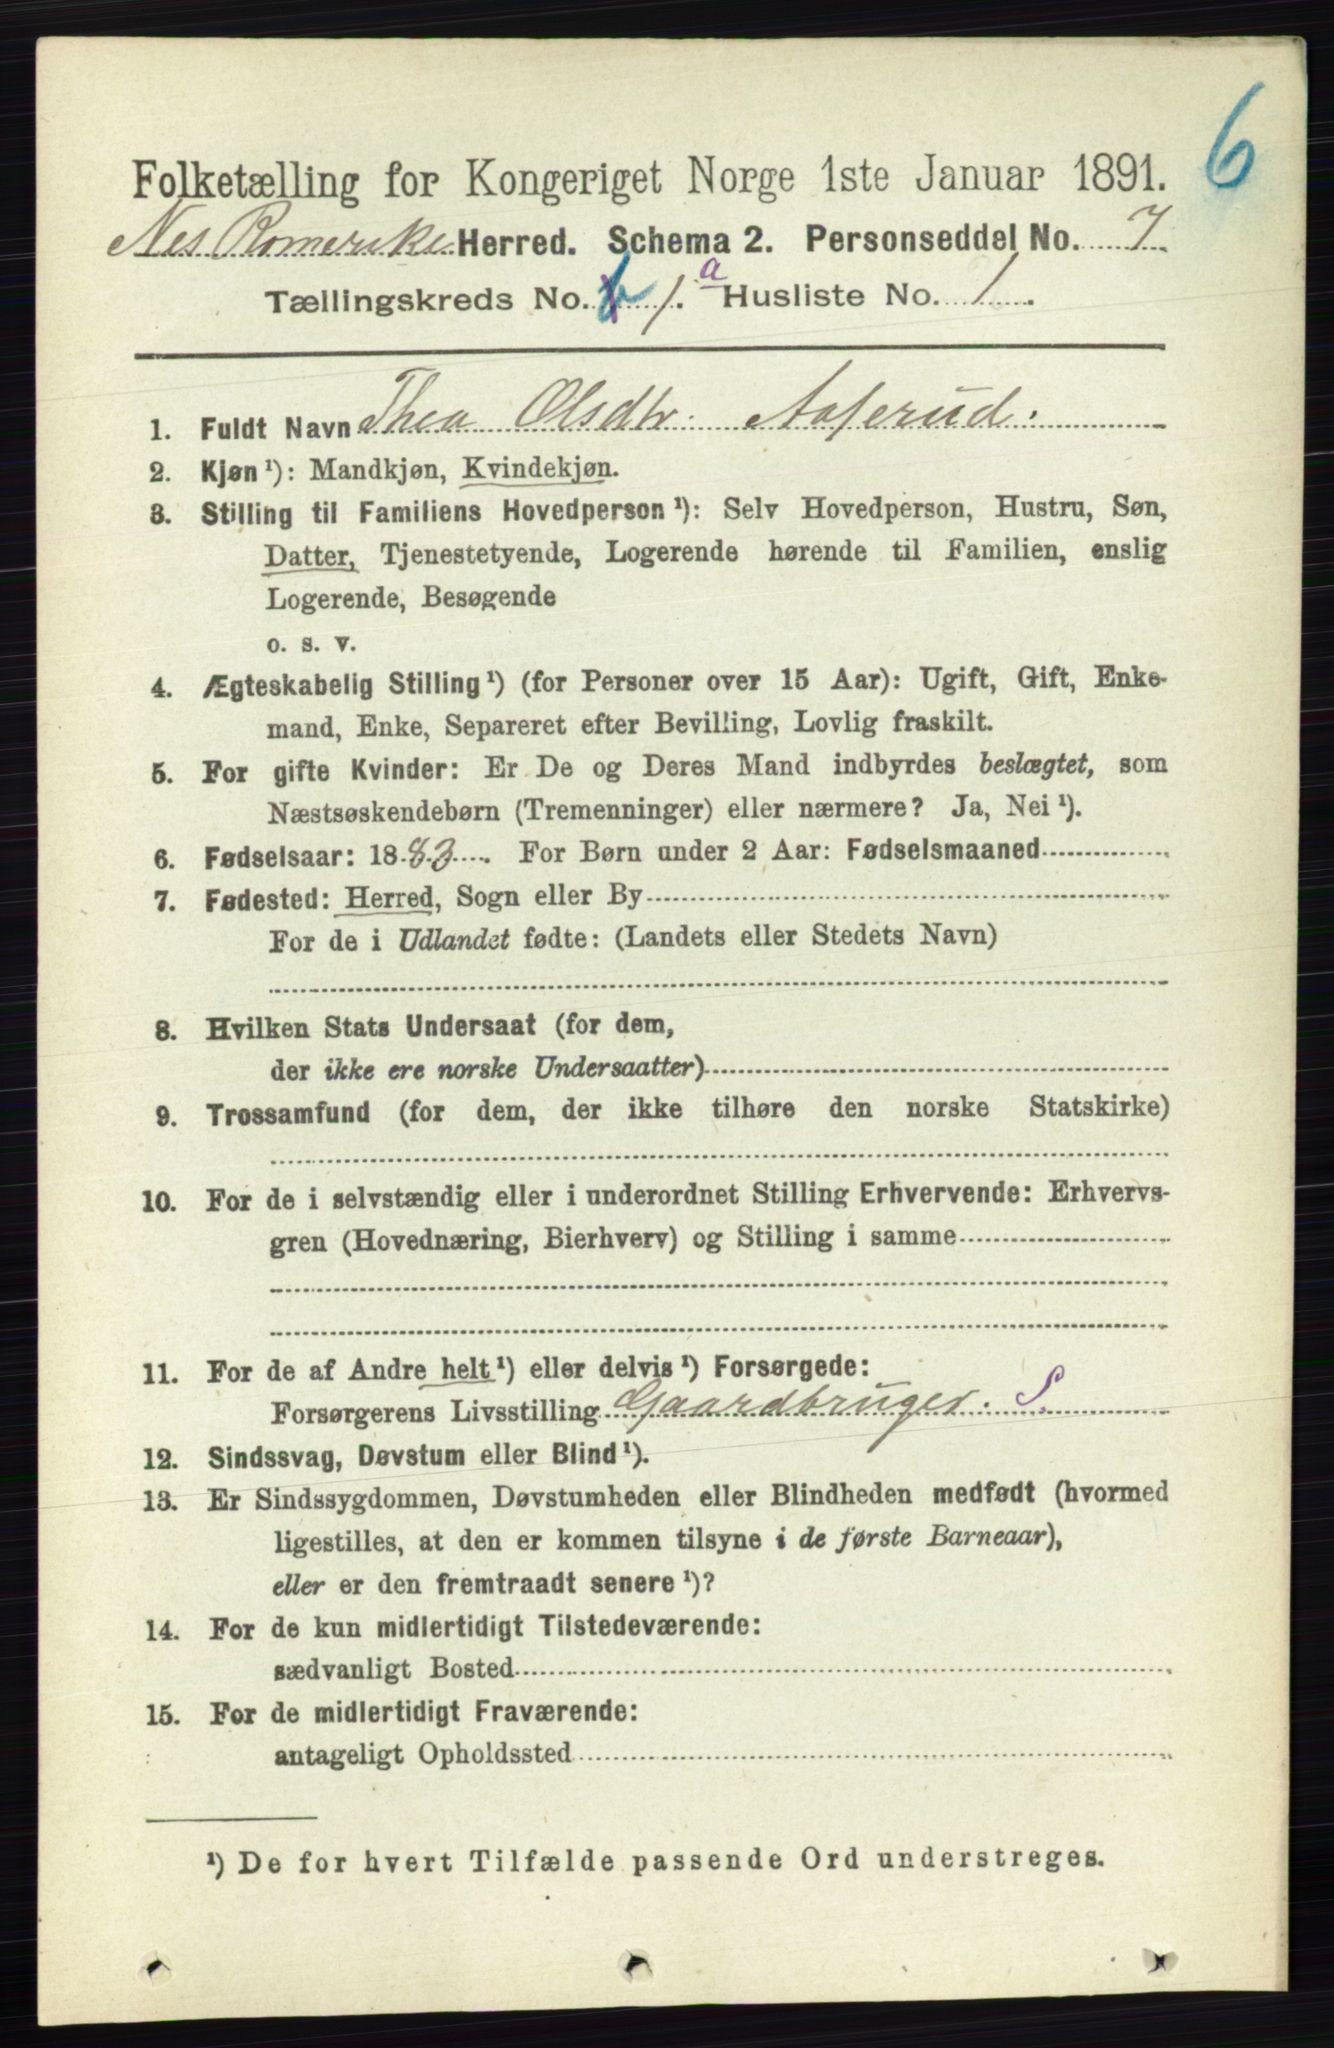 6
Folketælling for Kongeriget Norge 1ste Januar 1891.
Nes Romerike Herred. Schema 2. Personseddel No. 7
Tællingskreds No. 1. a Husliste No. 1.
1. Fuldt Navn Thea Olsdtr. Aaserud.
2. Kjøn ¹): Mandkjøn, Kvindekjøn.
3. Stilling til Familiens Hovedperson ¹): Selv Hovedperson, Hustru, Søn,
Datter, Tjenestetyende, Logerende hørende til Familien, enslig
Logerende, Besøgende
o. s. v.
4. Ægteskabelig Stilling ¹) (for Personer over 15 Aar): Ugift, Gift, Enke-
mand, Enke, Separeret efter Bevilling, Lovlig fraskilt.
5. For gifte Kvinder: Er De og Deres Mand indbyrdes beslægtet, som
Næstsøskendebørn (Tremenninger) eller nærmere? Ja, Nei ¹).
6. Fødselsaar: 1883. For Børn under 2 Aar: Fødselsmaaned
7. Fødested: Herred, Sogn eller By
For de i Udlandet fødte: (Landets eller Stedets Navn)
8. Hvilken Stats Undersaat (for dem,
der ikke ere norske Undersaatter)
9. Trossamfund (for dem, der ikke tilhøre den norske Statskirke)
10. For de i selvstændig eller i underordnet Stilling Erhvervende: Erhvervs-
gren (Hovednæring, Bierhverv) og Stilling i samme
11. For de af Andre helt ¹) eller delvis ¹) Forsørgede:
Forsørgerens Livsstilling Gaardbruger. S.
12. Sindssvag, Døvstum eller Blind ¹).
13. Er Sindssygdommen, Døvstumheden eller Blindheden medfødt (hvormed
ligestilles, at den er kommen tilsyne i de første Barneaar),
eller er den fremtraadt senere ¹)?
14. For de kun midlertidigt Tilstedeværende:
sædvanligt Bosted
15. For de midlertidigt Fraværende:
antageligt Opholdssted
¹) De for hvert Tilfælde passende Ord understreges.